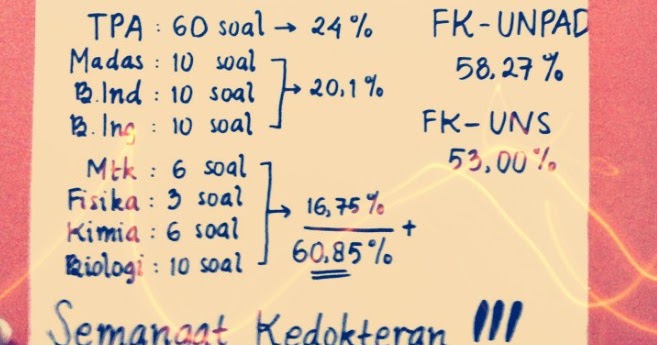 TPA : 60 soal → 24%
Madas : 10 soal
B.Ind : 10 soal → 20,1%
B.Ing : 10 soal
Mtk : 6 soal
Fisika : 3 soal
Kimia : 6 soal
Biologi : 10 soal
16,75%
+
60,85%
FK-UNPAD
58,27%
FK-UNS
53,00%
Semangat Kedokteran !!!